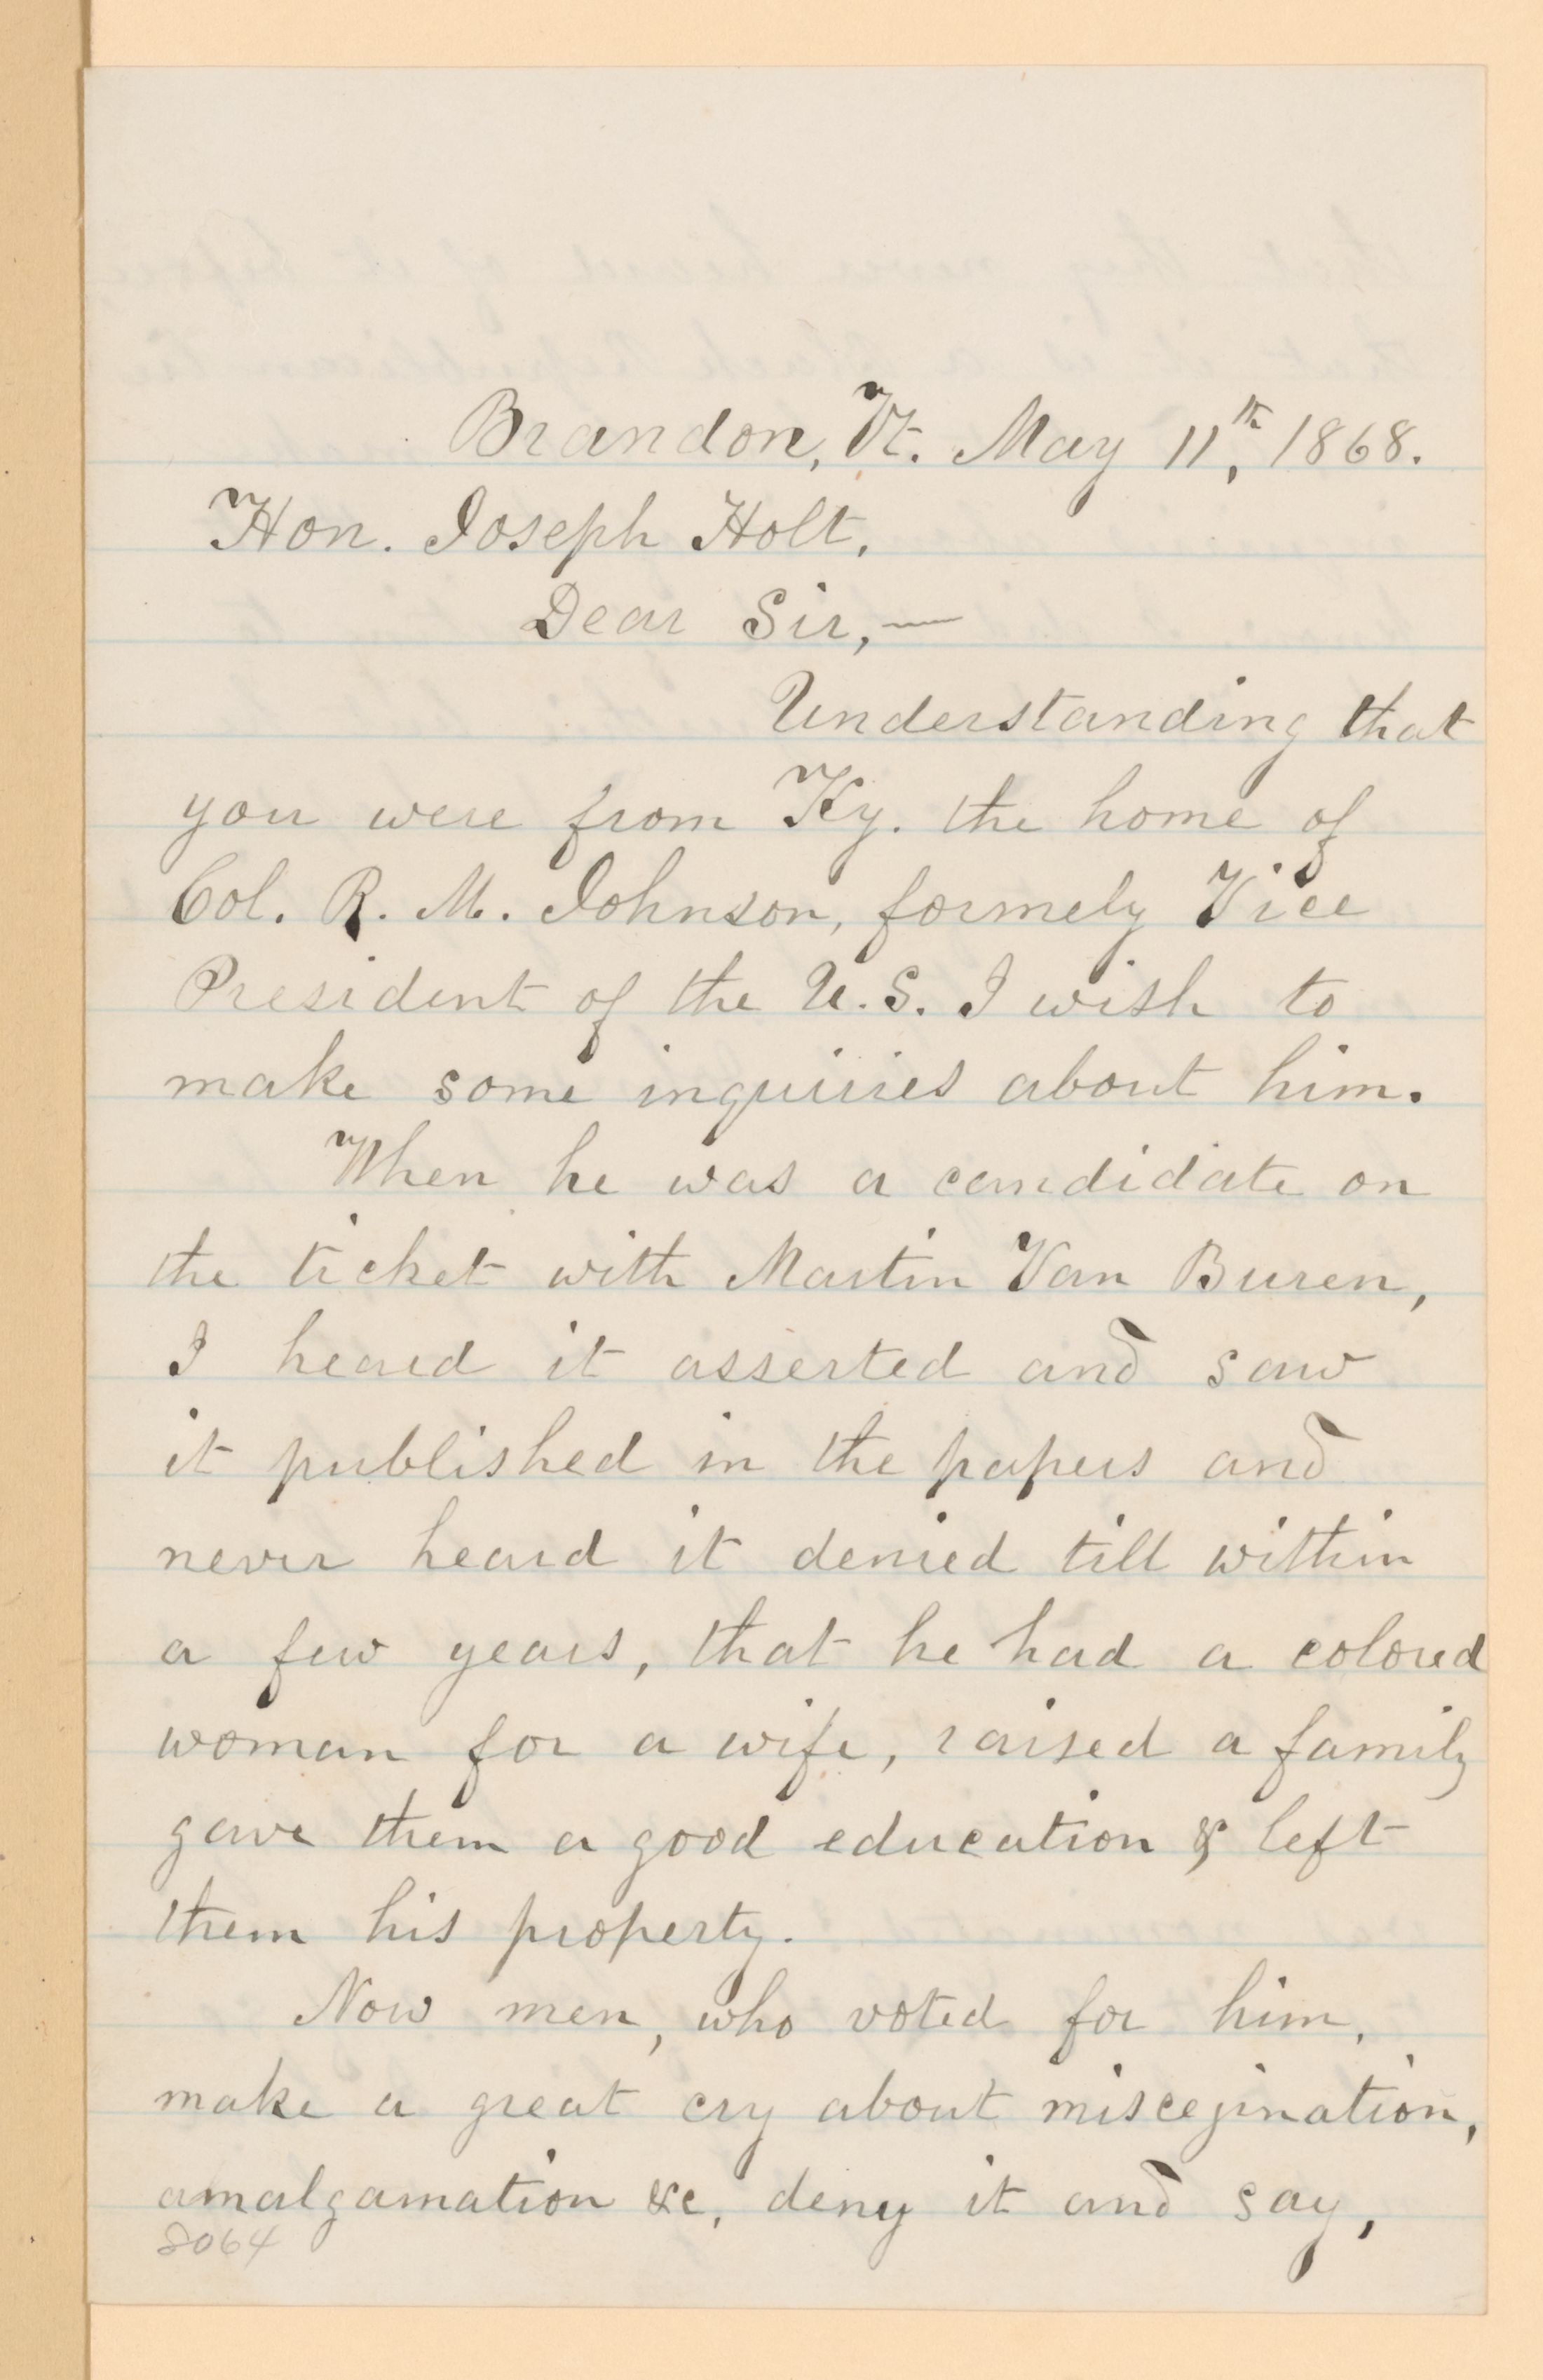 Brandon, Vt. May 11th, 1868.
Hon. Joseph Holt,
Dear Sir,—
Understanding that
you were from Ky. the home of
Col. R. M. Johnson, formely Vice
President of the U.S. I wish to
make some inquiries about him.
When he was a candidate on
the ticket with Martin Van Buren,
I heard it asserted and saw
it published in the papers and
never heard it denied till within
a few years, that he had a colored
woman for a wife, raised a family
gave them a good education & left
them his property.
Now men, who voted for him,
make a great cry about miscegination,
amalgamation &c, deny it and say,
8064